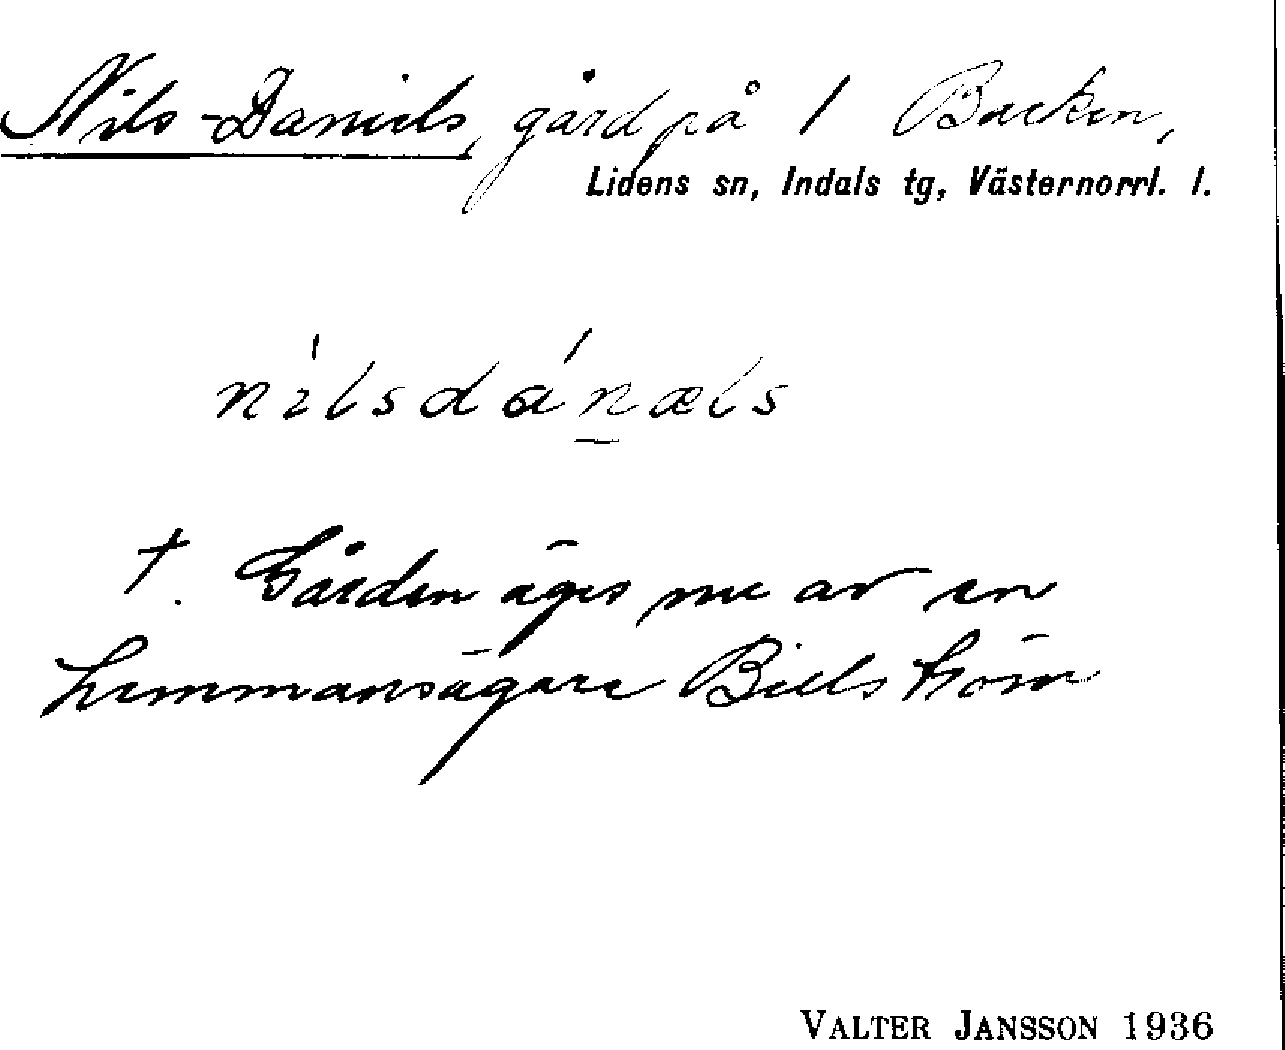 Nils-Daniels, gård på 1 Backen,
Lidens sn, Indals tg, Västernorrl. l.
nìlsdánæls
†. Gården äges nu av en
hemmansägare Bielström
VALTER JANSSON 1936